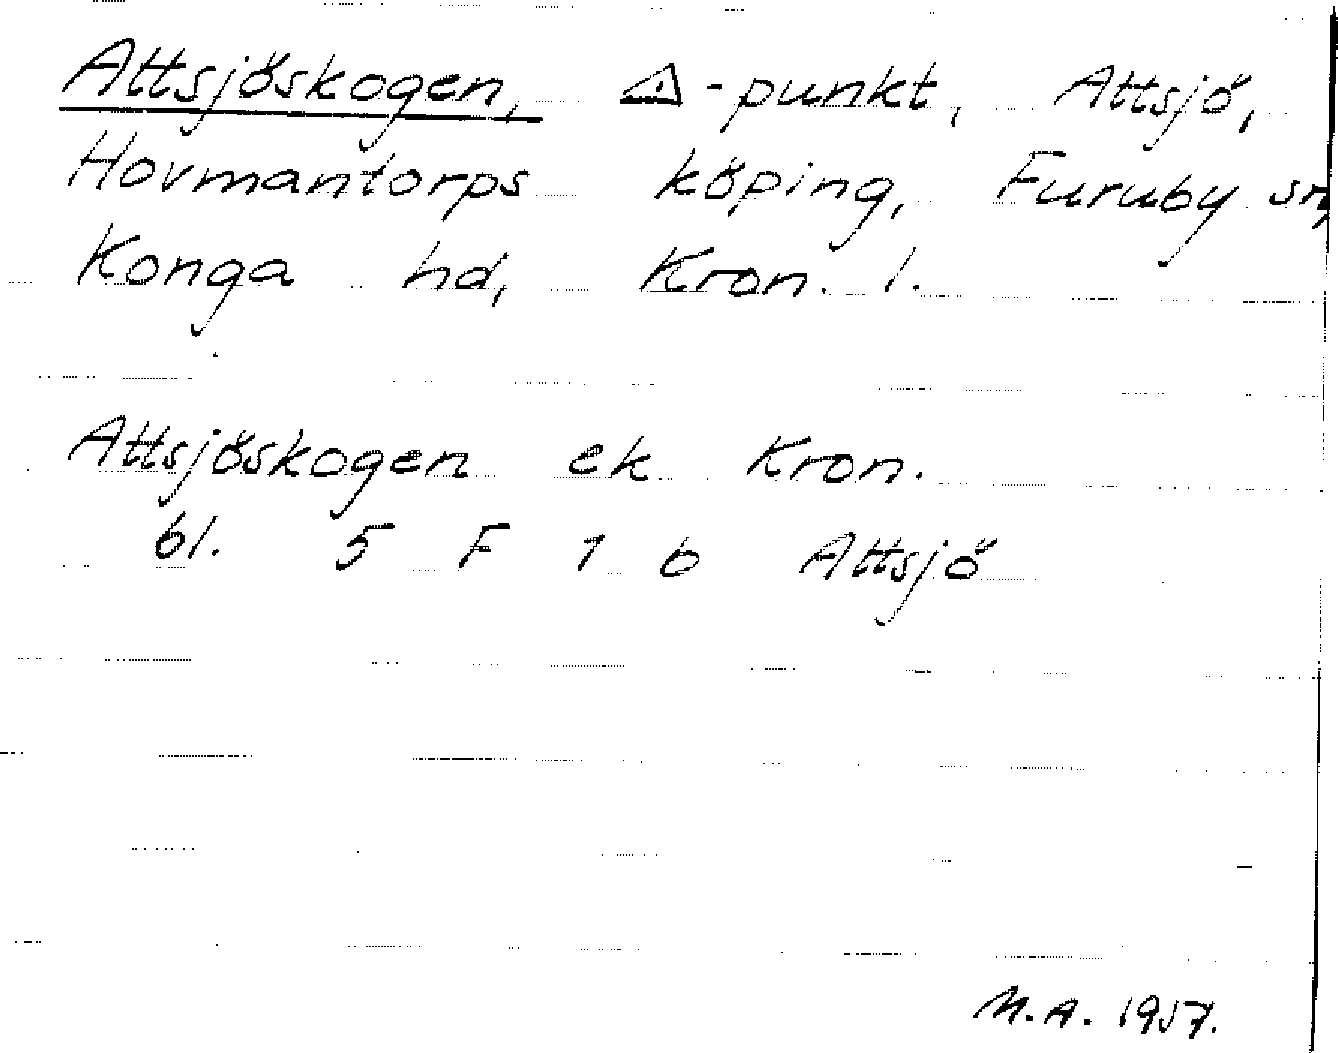 Attsjöskogen, △-punkt, Attsjö,
Hovmantorps köping, Furuby sn,
Konga hd, Kron. l.
Attsjöskogen ek Kron.
bl. 5 F 1 b Attsjö
M.A. 1957.